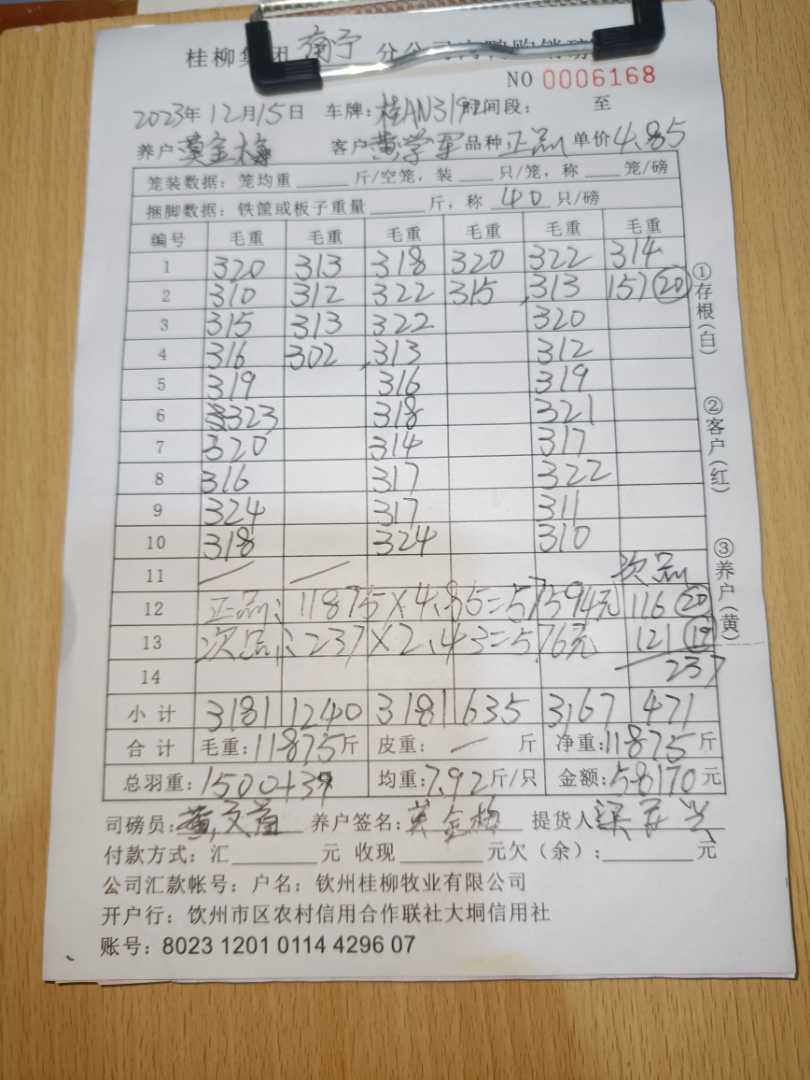 桂柳集团 南宁 分公司肉鸭购销磅
NO 0006168
2023年12月15日 车牌:桂AN319 时间段: 至
养户 莫金梅 客户 黄学军 品种 正品 单价 4.85
笼装数据: 笼均重 斤/空笼, 装 只/笼, 称 笼/磅
捆脚数据: 铁筐或板子重量 斤, 称 40 只/磅
编号 毛重 毛重 毛重 毛重 毛重 毛重
1 320 313 318 320 322 314
2 310 312 322 315 313 157 20
3 315 313 322 320
4 316 302 313 312
5 319 316 319
6 323 318 321
7 320 314 317
8 316 317 322
9 324 317 311
10 318 324 310
11 次品
12 正品: 11875×4.85=57594元 116 20
13 次品: 237×2.43=576元 121 19
14 237
小计 3181 1240 3181 635 3167 471
合计 毛重:11875斤 皮重: 斤 净重:11875斤
总羽重: 1500+39 均重:7.92斤/只 金额:58170元
司磅员: 养户签名: 莫金梅 提货人
付款方式: 汇 元 收现 元欠(余): 元
公司汇款帐号: 户名: 钦州桂柳牧业有限公司
开户行: 饮州市区农村信用合作联社大垌信用社
账号: 8023 1201 0114 4296 07
①存根(白)
②客户(红)
③养户(黄)